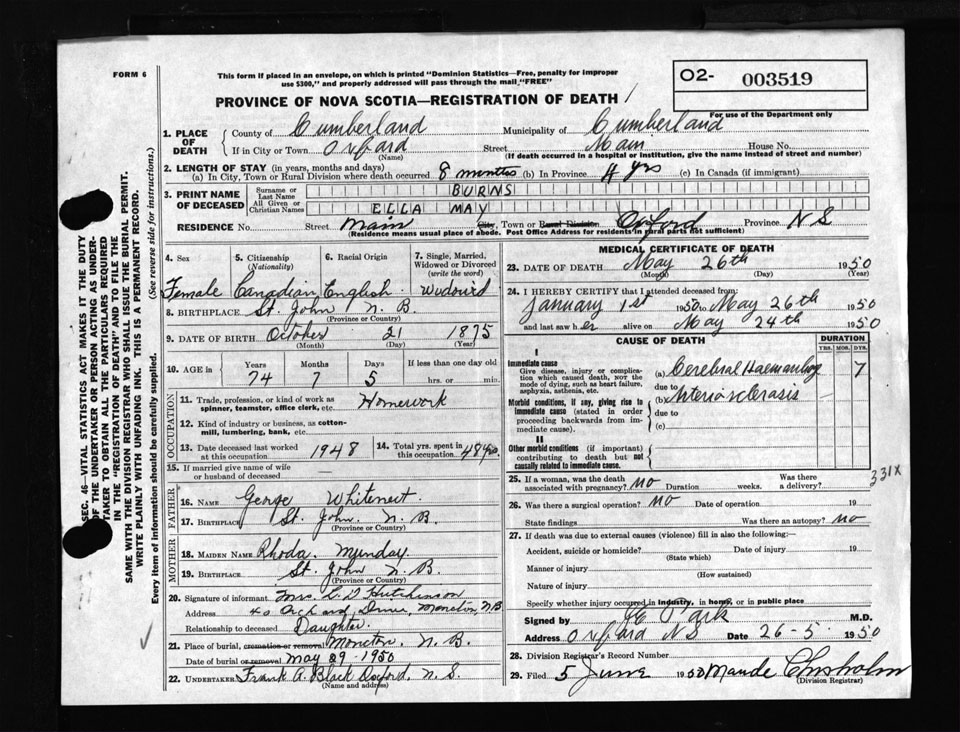 FORM 6
This form if placed in an envelope, on which is printed "Dominion Statistics—Free, penalty for improper
use $300," and properly addressed will pass through the mail "FREE"
O2- 003519
For use of the Department only
PROVINCE OF NOVA SCOTIA—REGISTRATION OF DEATH
1. PLACE OF DEATH
County of Cumberland Municipality of Cumberland
If in City or Town Oxford Street Main House No.
(Name) (If death occurred in a hospital or institution, give the name instead of street and number)
2. LENGTH OF STAY (in years, months and days)
(a) In City, Town or Rural Division where death occurred 8 months (b) In Province 4 yrs (c) In Canada (if immigrant)
3. PRINT NAME OF DECEASED
Surname or Last Name BURNS
All Given or Christian Names ELLA MAY
RESIDENCE No. Street Main City, Town or Rural Division Oxford Province N S
(Residence means usual place of abode. Post Office Address for residents in rural parts not sufficient)
4. Sex 5. Citizenship (Nationality) 6. Racial Origin 7. Single, Married, Widowed or Divorced (write the word)
Female Canadian English Widowed
8. BIRTHPLACE St. John N. B.
(Province or Country)
9. DATE OF BIRTH October 21 1875
(Month) (Day) (Year)
10. AGE in Years Months Days If less than one day old
74 7 5 hrs. or min.
OCCUPATION
11. Trade, profession, or kind of work as
spinner, teamster, office clerk, etc. Homework
12. Kind of industry or business, as cotton-
mill, lumbering, bank, etc.
13. Date deceased last worked
at this occupation 1948
14. Total yrs. spent in
this occupation 48 yrs.
15. If married give name of wife
or husband of deceased
FATHER
16. NAME George Whitenect.
17. BIRTHPLACE St. John. N. B.
(Province or Country)
MOTHER
18. MAIDEN NAME Rhoda. Munday.
19. BIRTHPLACE St. John N. B.
(Province or Country)
20. Signature of informant Mrs. C. D Hutchinson
Address 40 Orchard Drive, Moncton, N.B.
Relationship to deceased Daughter.
21. Place of burial, cremation or removal Moncton. N. B.
Date of burial or removal May 29 - 1950
22. UNDERTAKER Frank A. Black Oxford, N. S.
(Name and address)
MEDICAL CERTIFICATE OF DEATH
23. DATE OF DEATH May 26th 1950
(Month) (Day) (Year)
24. I HEREBY CERTIFY that I attended deceased from:
January 1st 1950 to May 26th 1950
and last saw her alive on May 24th 1950
CAUSE OF DEATH
DURATION
YRS. MOS. DYS.
I
Immediate cause
Give disease, injury or complica-
tion which caused death, not the
mode of dying, such as heart failure,
asphyxia, asthenia, etc.
Morbid conditions, if any, giving rise to
immediate cause (stated in order
proceeding backwards from im-
mediate cause).
II
Other morbid conditions (if important)
contributing to death but not
causally related to immediate cause.
(a) Cerebral Haemorrhage 7
due to
(b) Arteriosclerosis
due to
(c)
331X
25. If a woman, was the death
associated with pregnancy? no Duration weeks. Was there
a delivery?
26. Was there a surgical operation? no Date of operation 19
State findings Was there an autopsy? no
27. If death was due to external causes (violence) fill in also the following:—
Accident, suicide or homicide? Date of injury 19
(State which)
Manner of injury
(How sustained)
Nature of injury
Specify whether injury occurred in industry, in home, or in public place
Signed by Park M.D.
Address Oxford N S Date 26 - 5 - 1950
28. Division Registrar's Record Number
29. Filed 5 June 1950 Maude Chisholm
(Division Registrar)
SEC. 46—VITAL STATISTICS ACT MAKES IT THE DUTY
OF THE UNDERTAKER OR PERSON ACTING AS UNDER-
TAKER TO OBTAIN ALL THE PARTICULARS REQUIRED
IN THE "REGISTRATION OF DEATH" AND TO FILE THE
SAME WITH THE DIVISION REGISTRAR WHO SHALL ISSUE THE BURIAL PERMIT.
WRITE PLAINLY WITH UNFADING INK. THIS IS A PERMANENT RECORD.
Every item of Information should be carefully supplied. (See reverse side for instructions.)